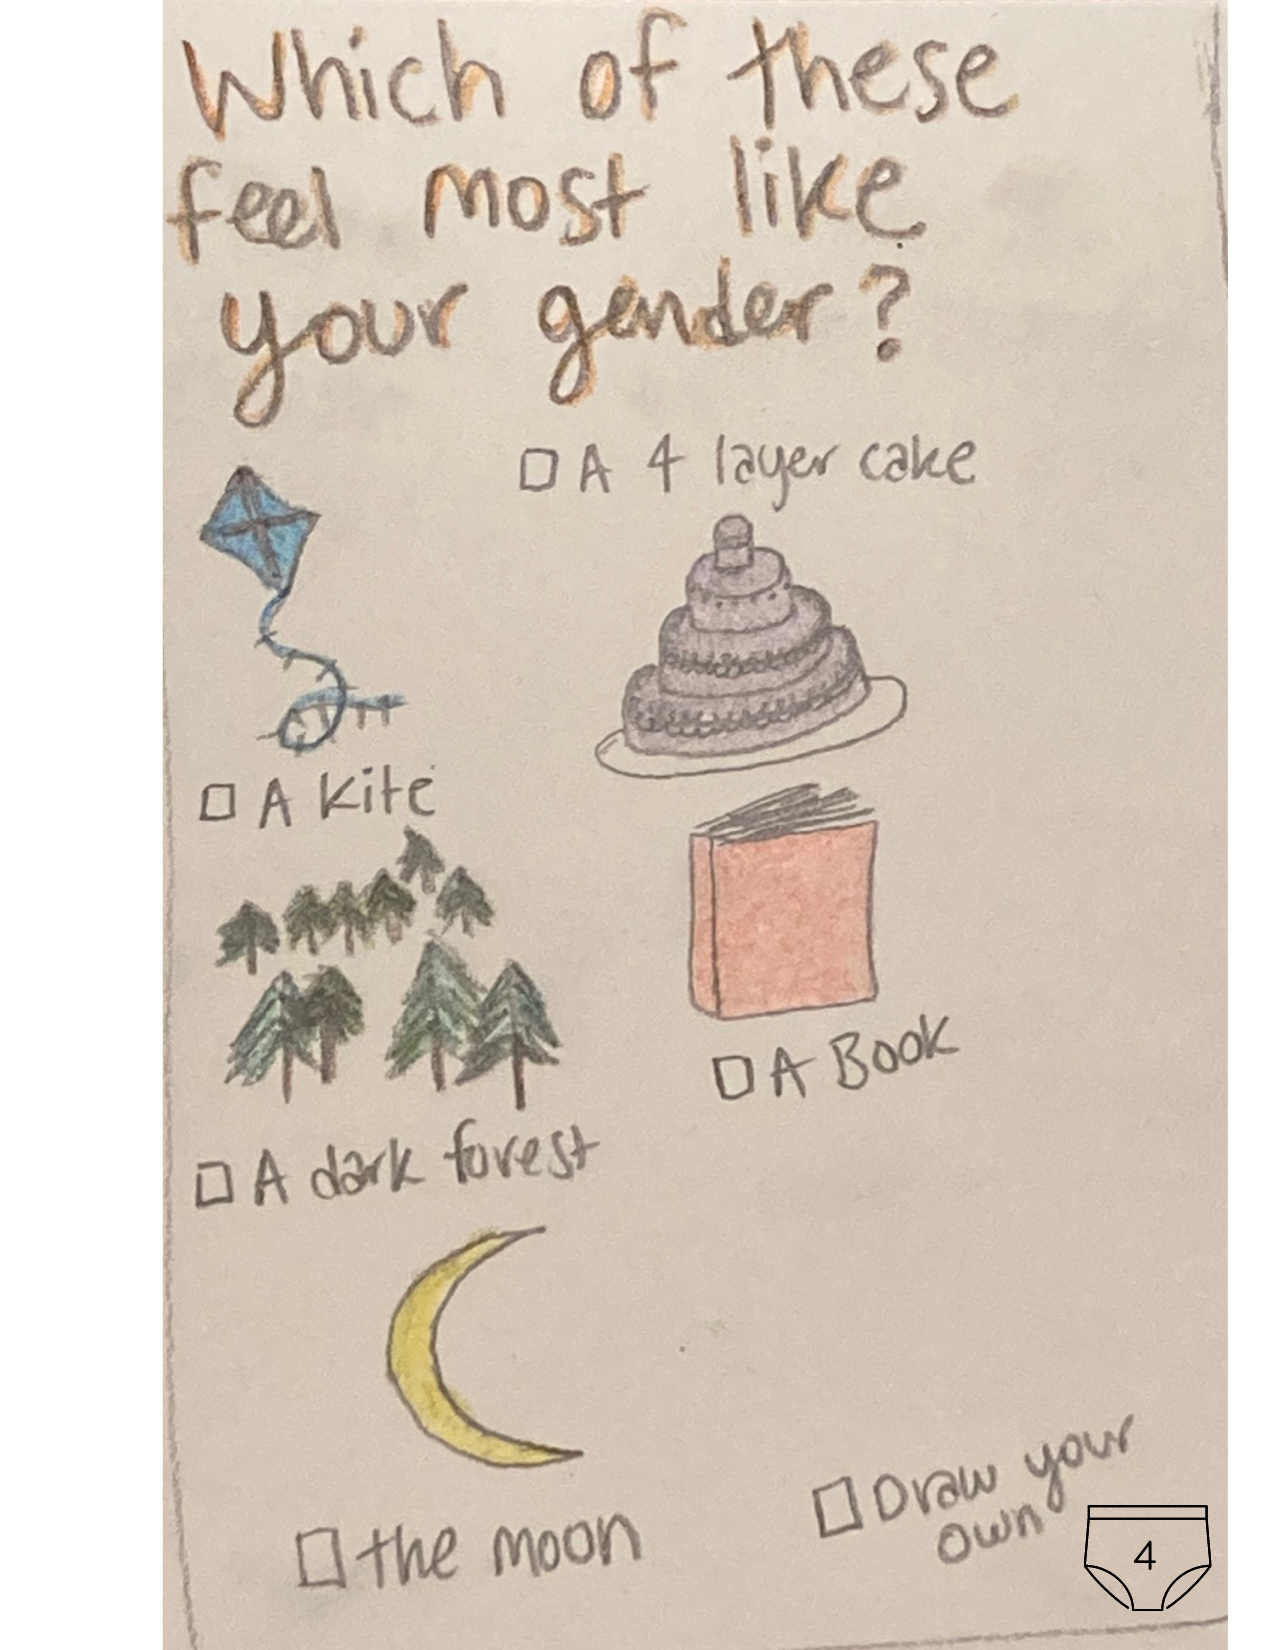 Which of these
feel most like
your gender?
A 4 layer cake
A Kite
A Book
A dark forest
the moon
Draw your
own
4